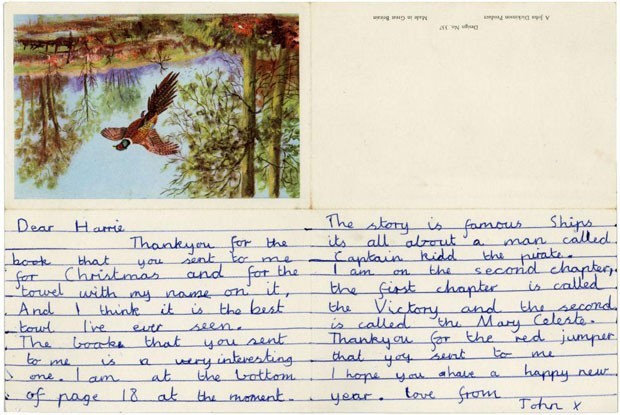 A John Dickinson Product
Design No.
Made in Great Britain
Dear Harrie
Thankyou for the
book that you sent to me
for Christmas and for the
towel with my name on it,
And I think it is the best
towl I've ever seen.
The booke that you sent
to me is a very interesting
one. I am at the bottom
of page 18 at the moment.
The story is famous Ships
its all about a man called
Captain kidd the pirate.
I am on the second chapter,
the first chapter is called
the Victory and the second
is called the Mary Celeste.
Thankyou for the red jumper
that you sent to me
I hope you ahave a happy new
year. love from
John x